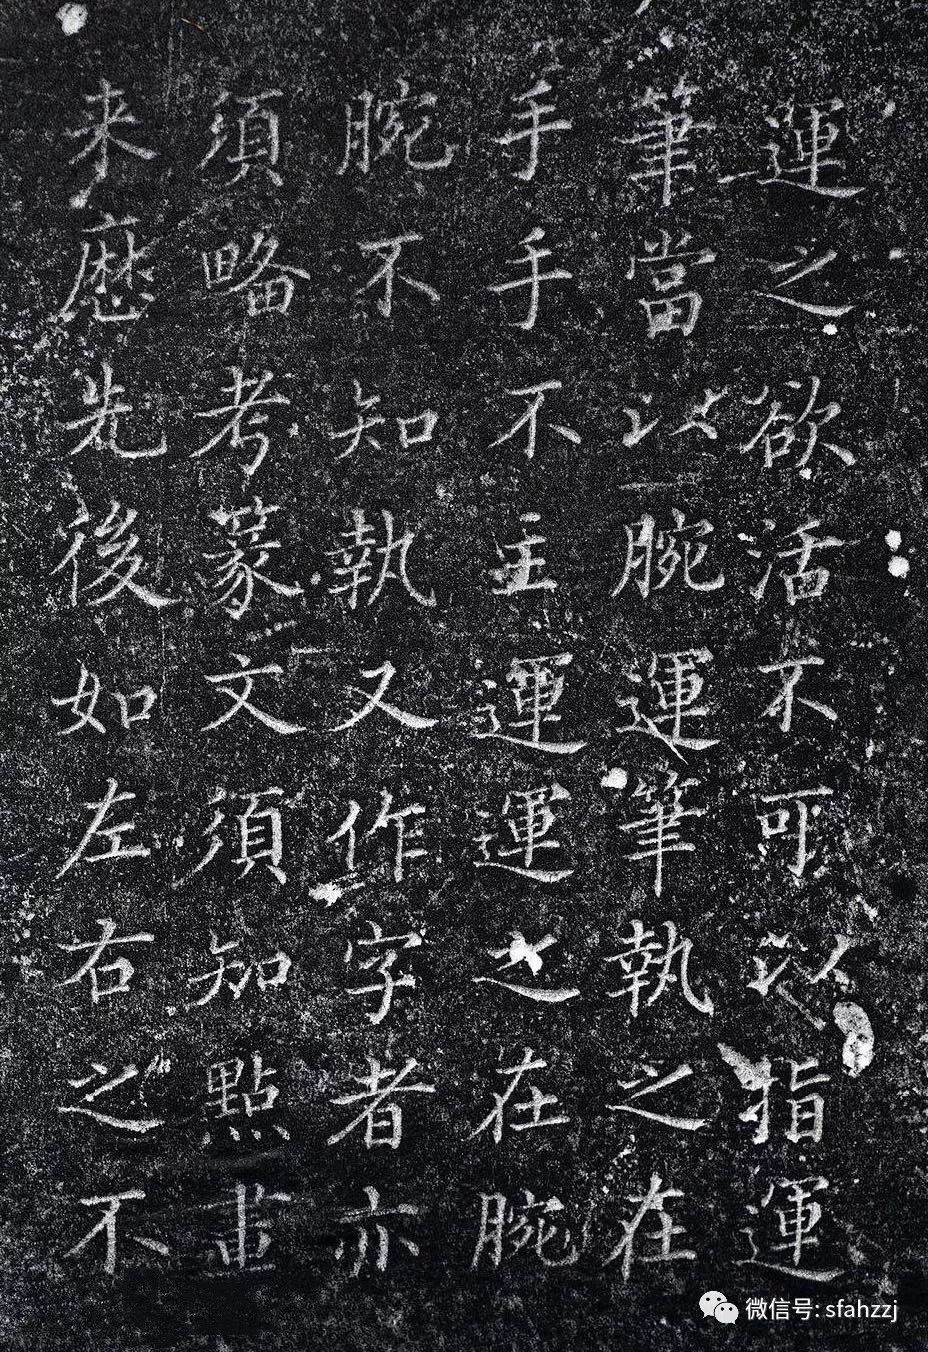 運之欲活不可以指運
筆當以腕運筆執之在
手手不主運運之在腕
腕不知執又作字者亦
須略考篆文須知點畫
来歷先後如左右之不
微信号: sfahzzj